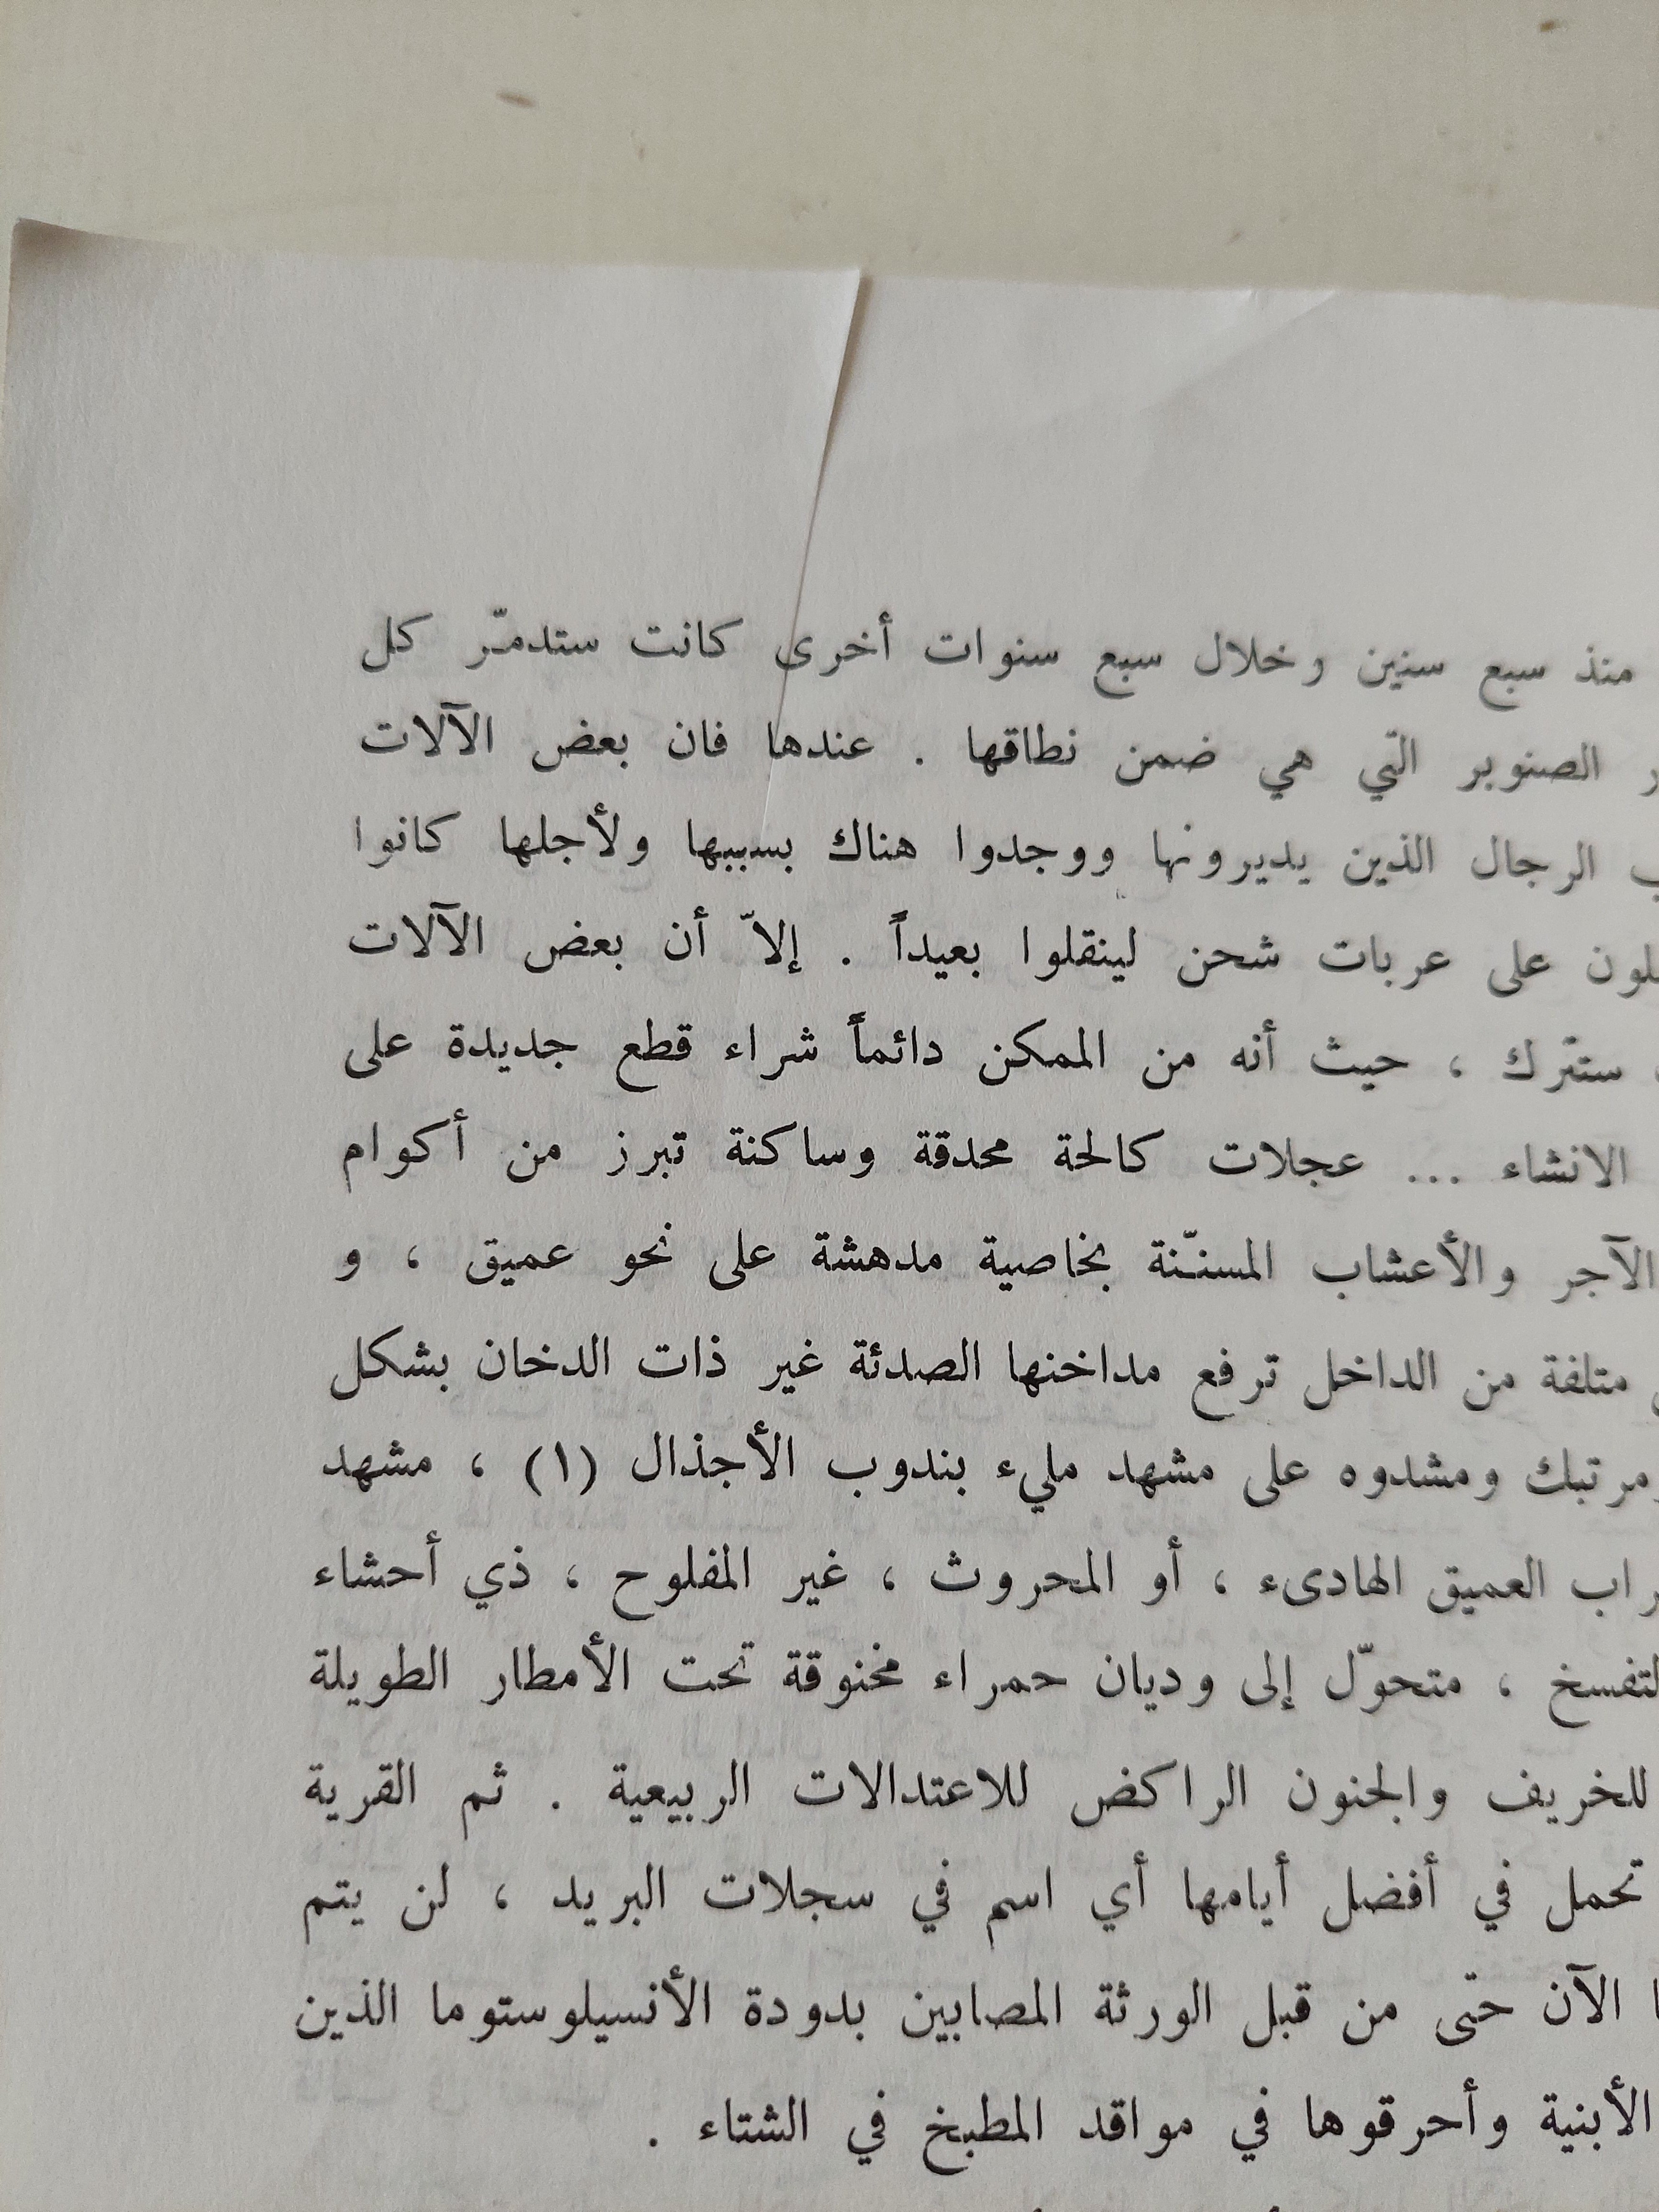 منذ سبع سنين وخلال سبع سنوات أخرى كانت ستدمّر كل
الصنوبر التي هي ضمن نطاقها . عندها فان بعض الآلات
الرجال الذين يديرونها ووجدوا هناك بسببها ولأجلها كانوا
على عربات شحن لينقلوا بعيداً . إلاّ أن بعض الآلات
ستترك ، حيث أنه من الممكن دائماً شراء قطع جديدة على
الانشاء ... عجلات كالحة محدقة وساكنة تبرز من أكوام
الآجر والأعشاب المسنّنة بخاصية مدهشة على نحو عميق ، و
متلفة من الداخل ترفع مداخنها الصدئة غير ذات الدخان بشكل
مرتبك ومشدوه على مشهد مليء بندوب الأجذال (١) ، مشهد
العميق الهادىء ، أو المحروث ، غير المفلوح ، ذي أحشاء
لتفسخ ، متحوّل إلى وديان حمراء مخنوقة تحت الأمطار الطويلة
للخريف والجنون الراكض للاعتدالات الربيعية . ثم القرية
تحمل في أفضل أيامها أي اسم في سجلات البريد ، لن يتم
الآن حتى من قبل الورثة المصابين بدودة الأنسيلوستوما الذين
الأبنية وأحرقوها في مواقد المطبخ في الشتاء .